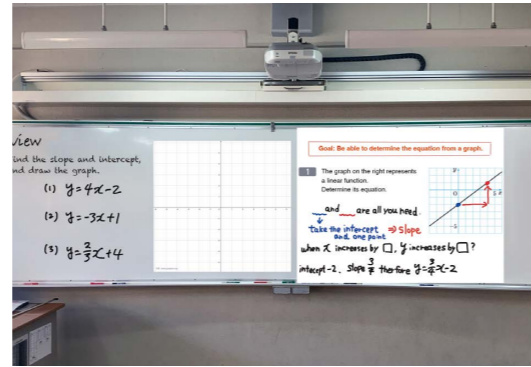 view
ind the slope and intercept,
nd draw the graph.
(1) y=4x-2
(2) y=-3x+1
(3) y=⅔x+4
Goal: Be able to determine the equation from a graph.
1 The graph on the right represents
a linear function.
Determine its equation.
__ and __ are all you need.
take the intercept ⇒ slope
and one point
when x increases by □, y increases by □?
intecept-2. slope ¾ therfore y=¾x-2
y
O
5 x
-5